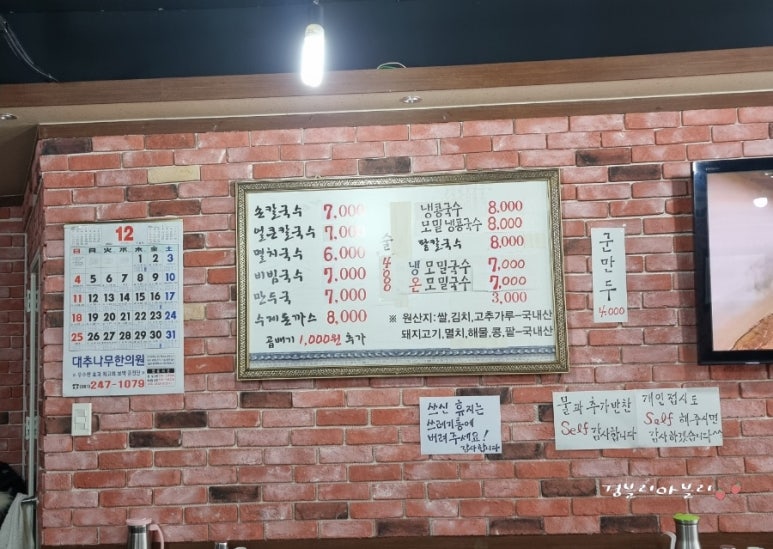 12
日 月 火 水 木 金 土
1 2 3
4 5 6 7 8 9 10
11 12 13 14 15 16 17
18 19 20 21 22 23 24
25 26 27 28 29 30 31
대추나무한의원
247-1079
손칼국수 7,000
얼큰칼국수 7,000
멸치국수 6,000
비빔국수 7,000
만두국 7,000
수제돈까스 8,000
곱배기 1,000원 추가
냉콩국수 8,000
모밀냉콩국수 8,000
팥칼국수 8,000
냉모밀국수 7,000
온모밀국수 7,000
3,000
※ 원산지:쌀,김치,고추가루-국내산
돼지고기,멸치,해물,콩,팥-국내산
군만두
4,000
쓰신 휴지는
쓰레기통에
버려주세요!
감사합니다
물과 추가반찬
Self 감사합니다
개인접시도
Self 해주시면
감사하겠습니다^^
경부리아부리